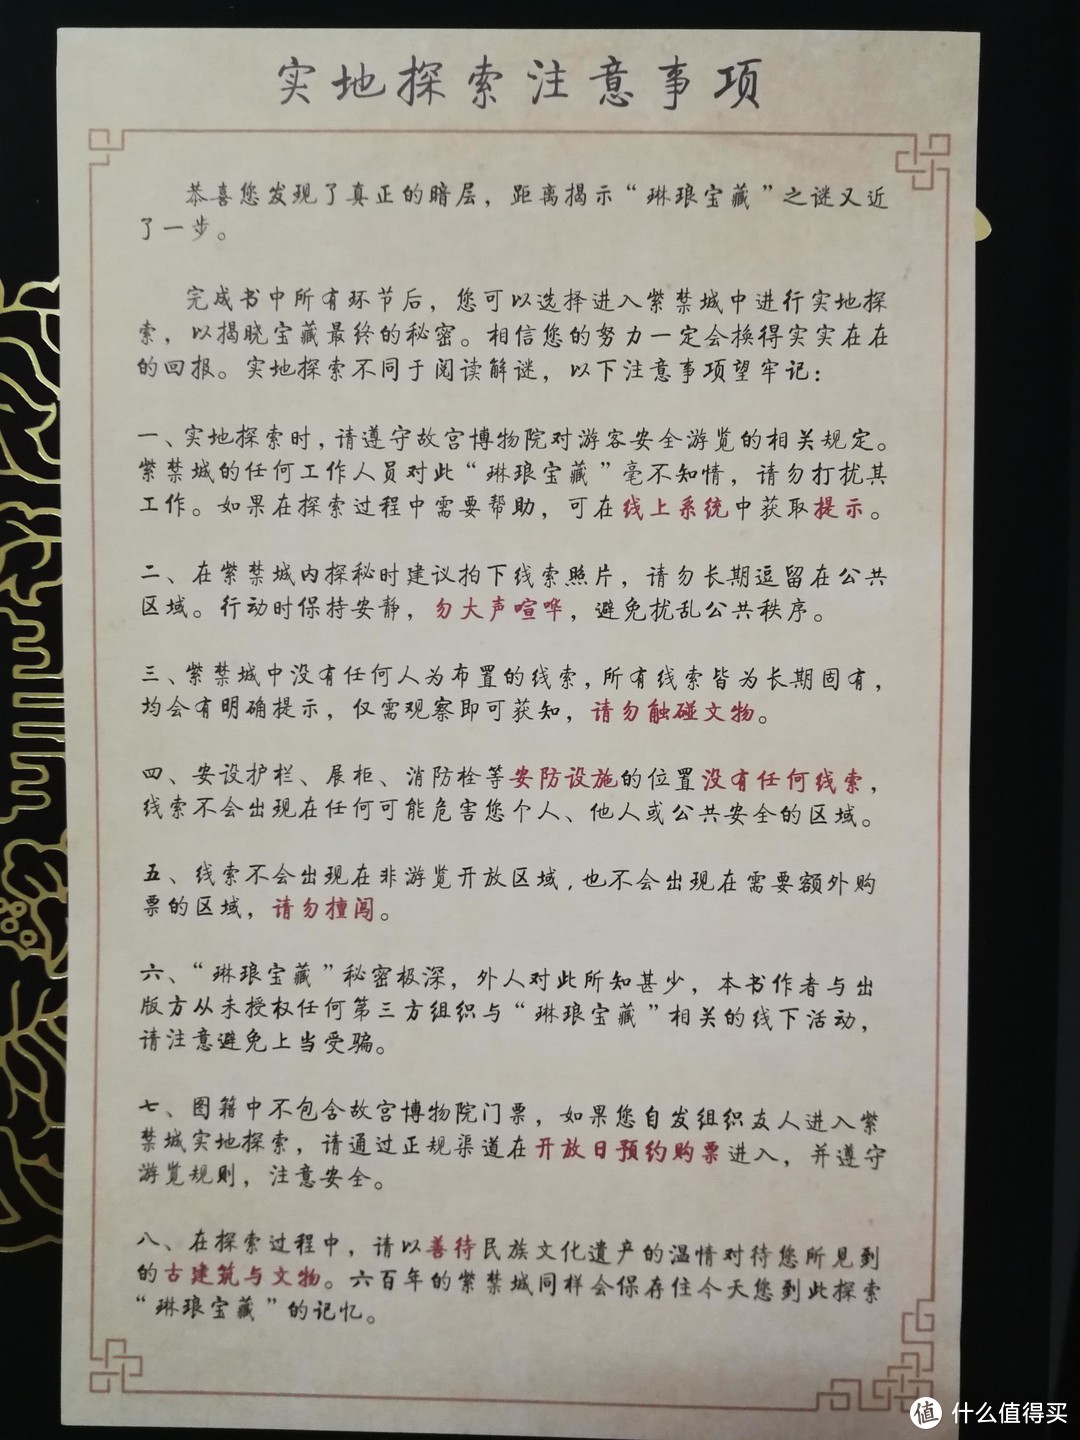 实地探索注意事项
恭喜您发现了真正的暗层，距离揭示“琳琅宝藏”之谜又近
了一步。
完成书中所有环节后，您可以选择进入紫禁城中进行实地探
索，以揭晓宝藏最终的秘密。相信您的努力一定会换得实实在在
的回报。实地探索不同于阅读解谜，以下注意事项望牢记：
一、实地探索时，请遵守故宫博物院对游客安全游览的相关规定。
紫禁城的任何工作人员对此“琳琅宝藏”毫不知情，请勿打扰其
工作。如果在探索过程中需要帮助，可在线上系统中获取提示。
二、在紫禁城内探秘时建议拍下线索照片，请勿长期逗留在公共
区域。行动时保持安静，勿大声喧哗，避免扰乱公共秩序。
三、紫禁城中没有任何人为布置的线索，所有线索皆为长期固有，
均会有明确提示，仅需观察即可获知，请勿触碰文物。
四、安设护栏、展柜、消防栓等安防设施的位置没有任何线索，
线索不会出现在任何可能危害您个人、他人或公共安全的区域。
五、线索不会出现在非游览开放区域，也不会出现在需要额外购
票的区域，请勿擅闯。
六、“琳琅宝藏”秘密极深，外人对此所知甚少，本书作者与出
版方从未授权任何第三方组织与“琳琅宝藏”相关的线下活动，
请注意避免上当受骗。
七、图籍中不包含故宫博物院门票，如果您自发组织友人进入紫
禁城实地探索，请通过正规渠道在开放日预约购票进入，并遵守
游览规则，注意安全。
八、在探索过程中，请以善待民族文化遗产的温情对待您所见到
的古建筑与文物。六百年的紫禁城同样会保存住今天您到此探索
“琳琅宝藏”的记忆。
值 什么值得买